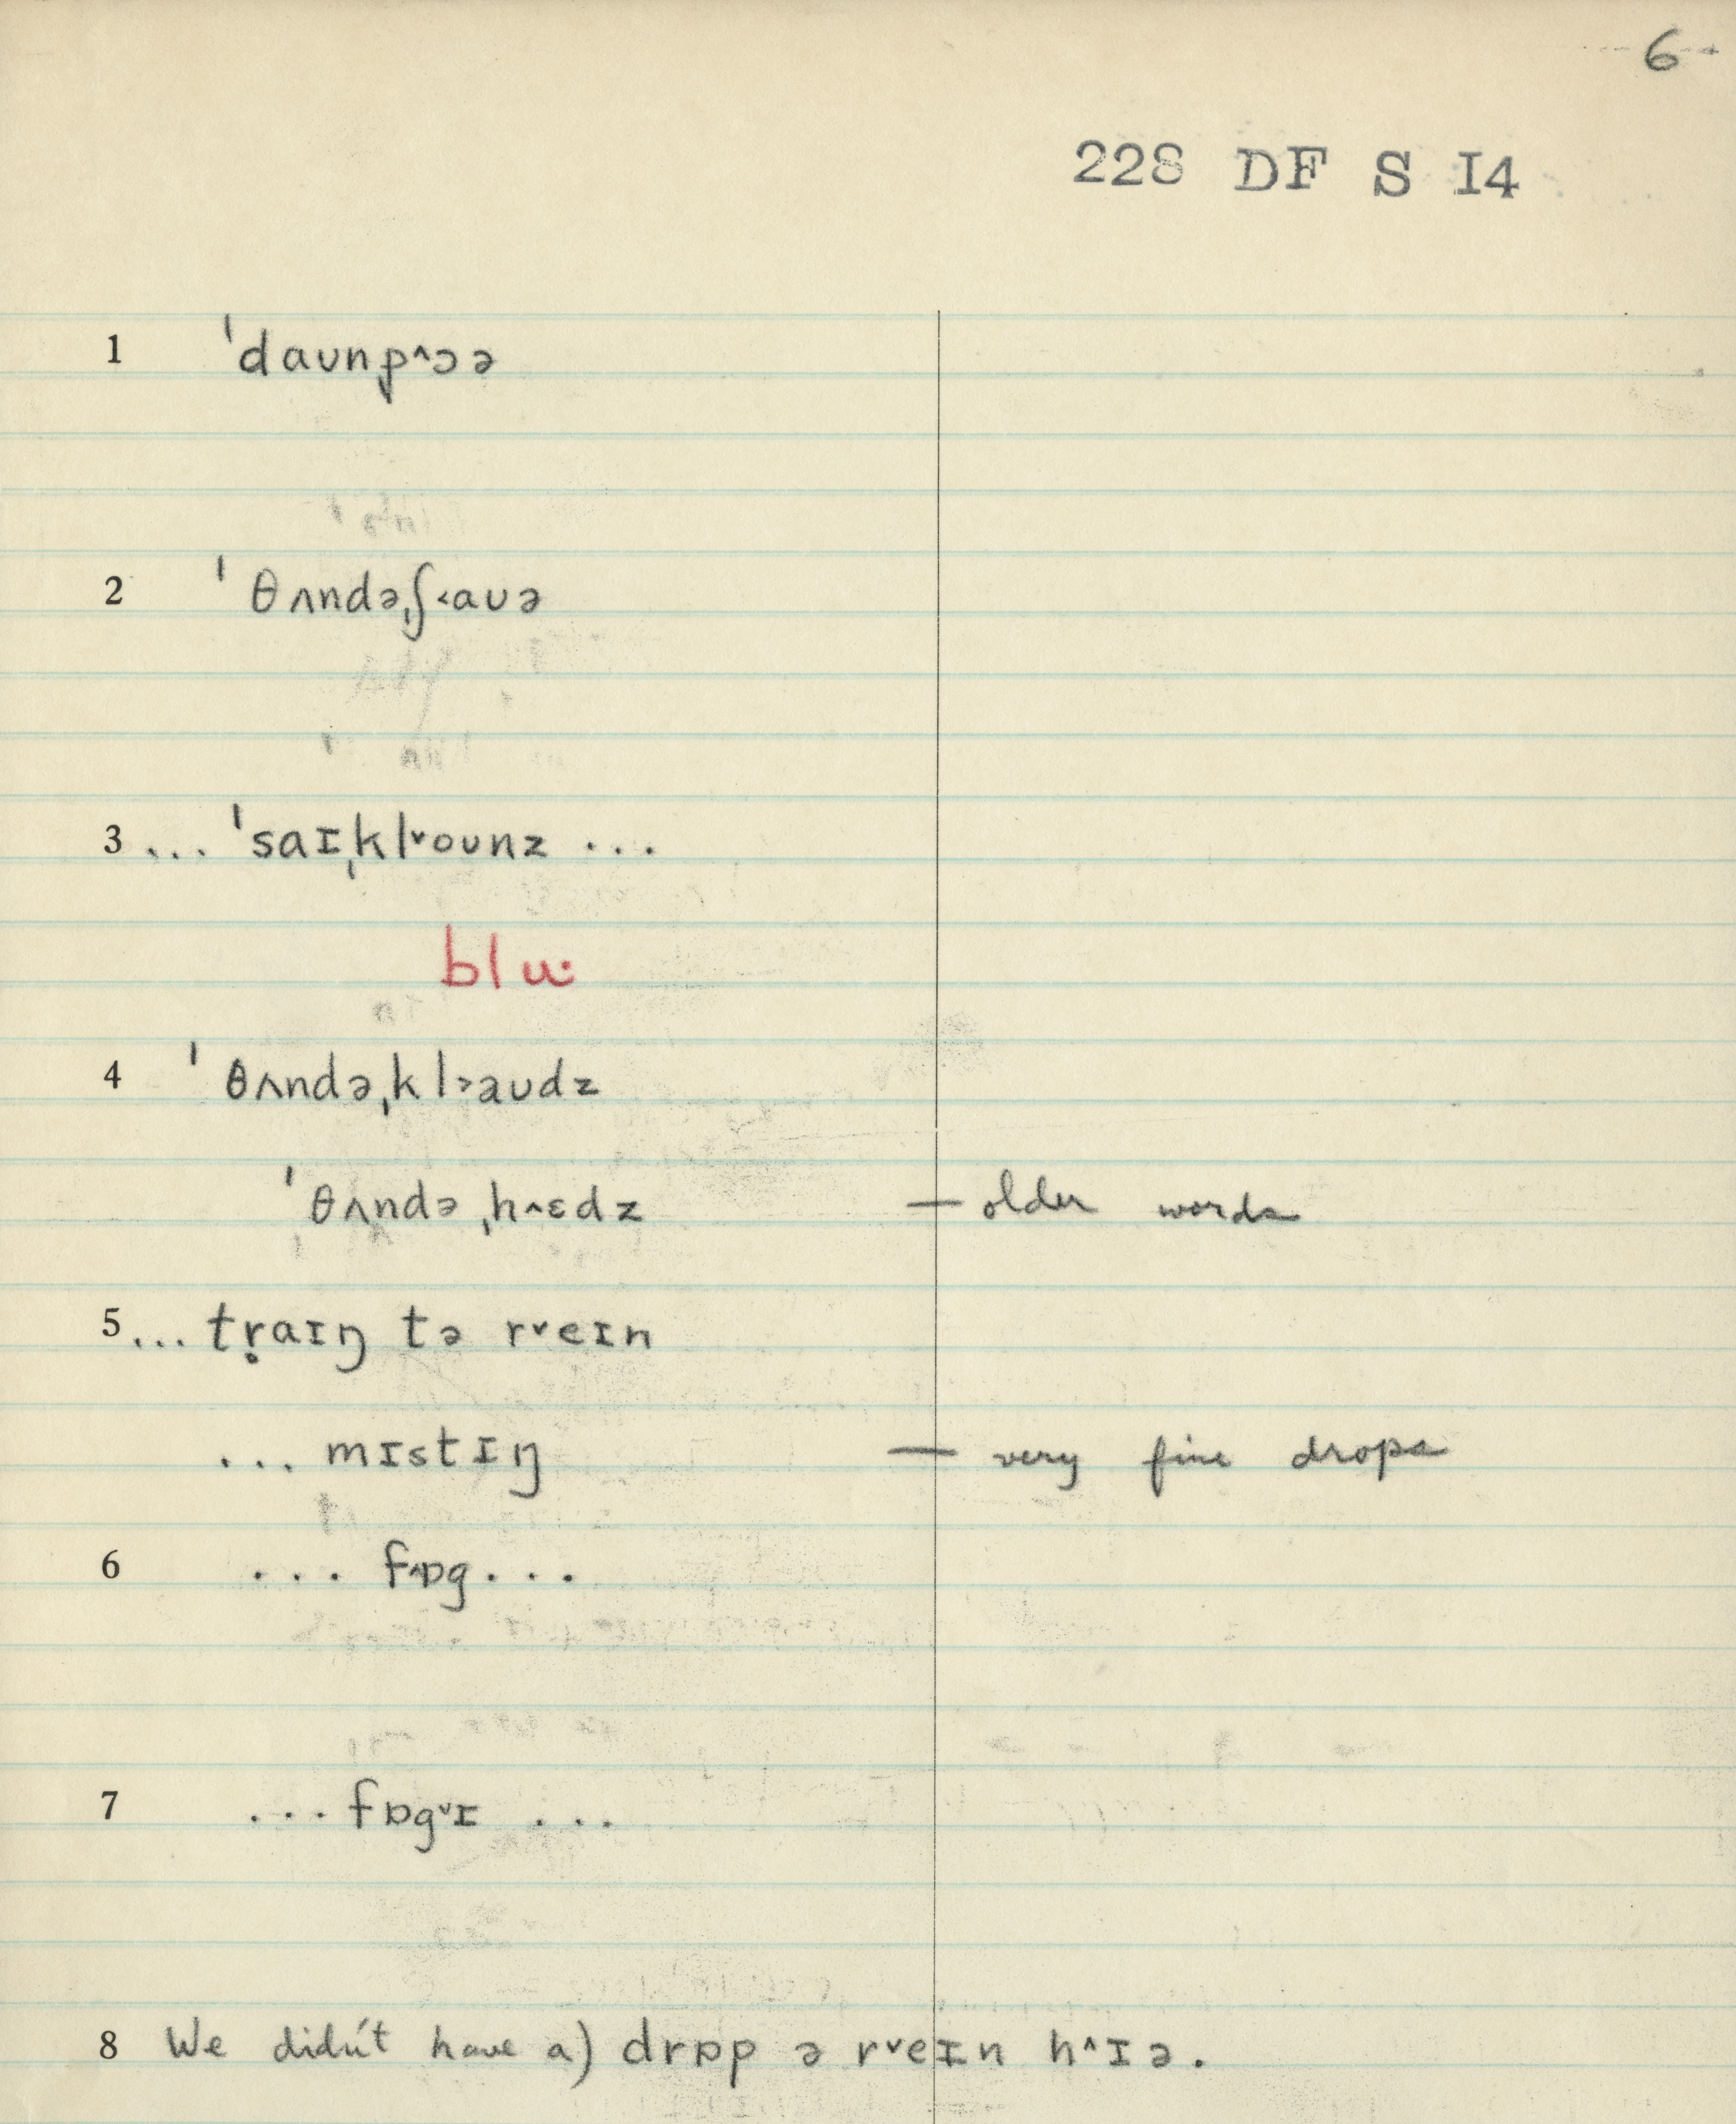 6
228 DF S I4
1 ˈdaʊnˌp^ɔə
2 ˈθʌndəˌʃ˂aʊə
3 ... ˈsaɪˌkl˅oʊnz ...
blu·
4 ˈθʌndəˌkl˃aʊdz
ˈθʌndəˌh^ɛdz — older words
5 ... tr̥aɪŋ tə r˅eɪn
... mɪstɪŋ — very fine drops
6 ... f^ɒg ...
7 ... fɒg˅ɪ ...
8 We didn't have a) drɒp ə r˅eɪn h^ɪə.